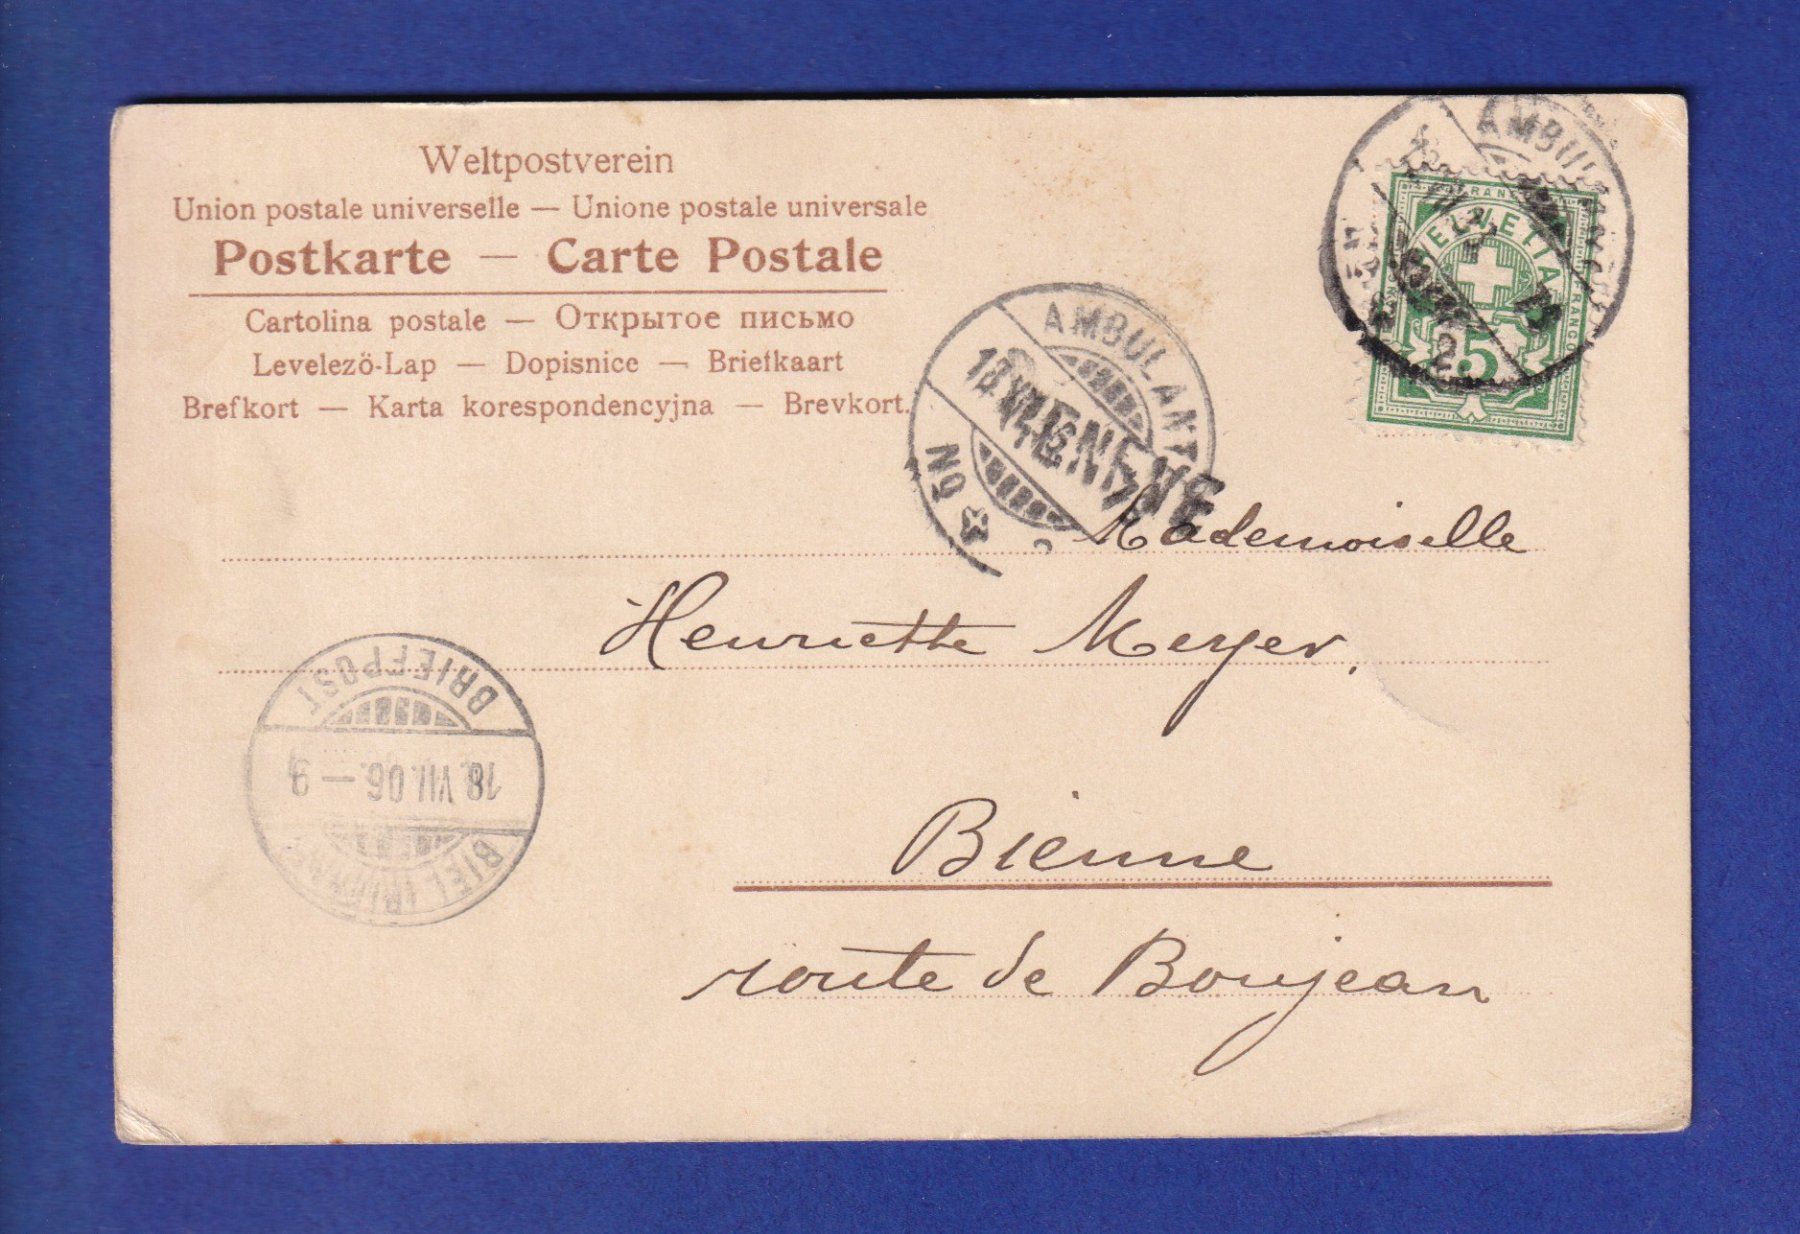 Weltpostverein
Union postale universelle — Unione postale universale
Postkarte — Carte Postale
Cartolina postale — Открытое письмо
Levelező-Lap — Dopisnice — Briefkaart
Brefkort — Karta korespondencyjna — Brevkort.
AMBULANT
HELVETIA
FRANCO
5
2
AMBULANT
18 VII
No
Mademoiselle
Henriette Meyer.
Bienne
route de Boujean
BRIEFPOST
18. VII. 06. — 9
BIEL